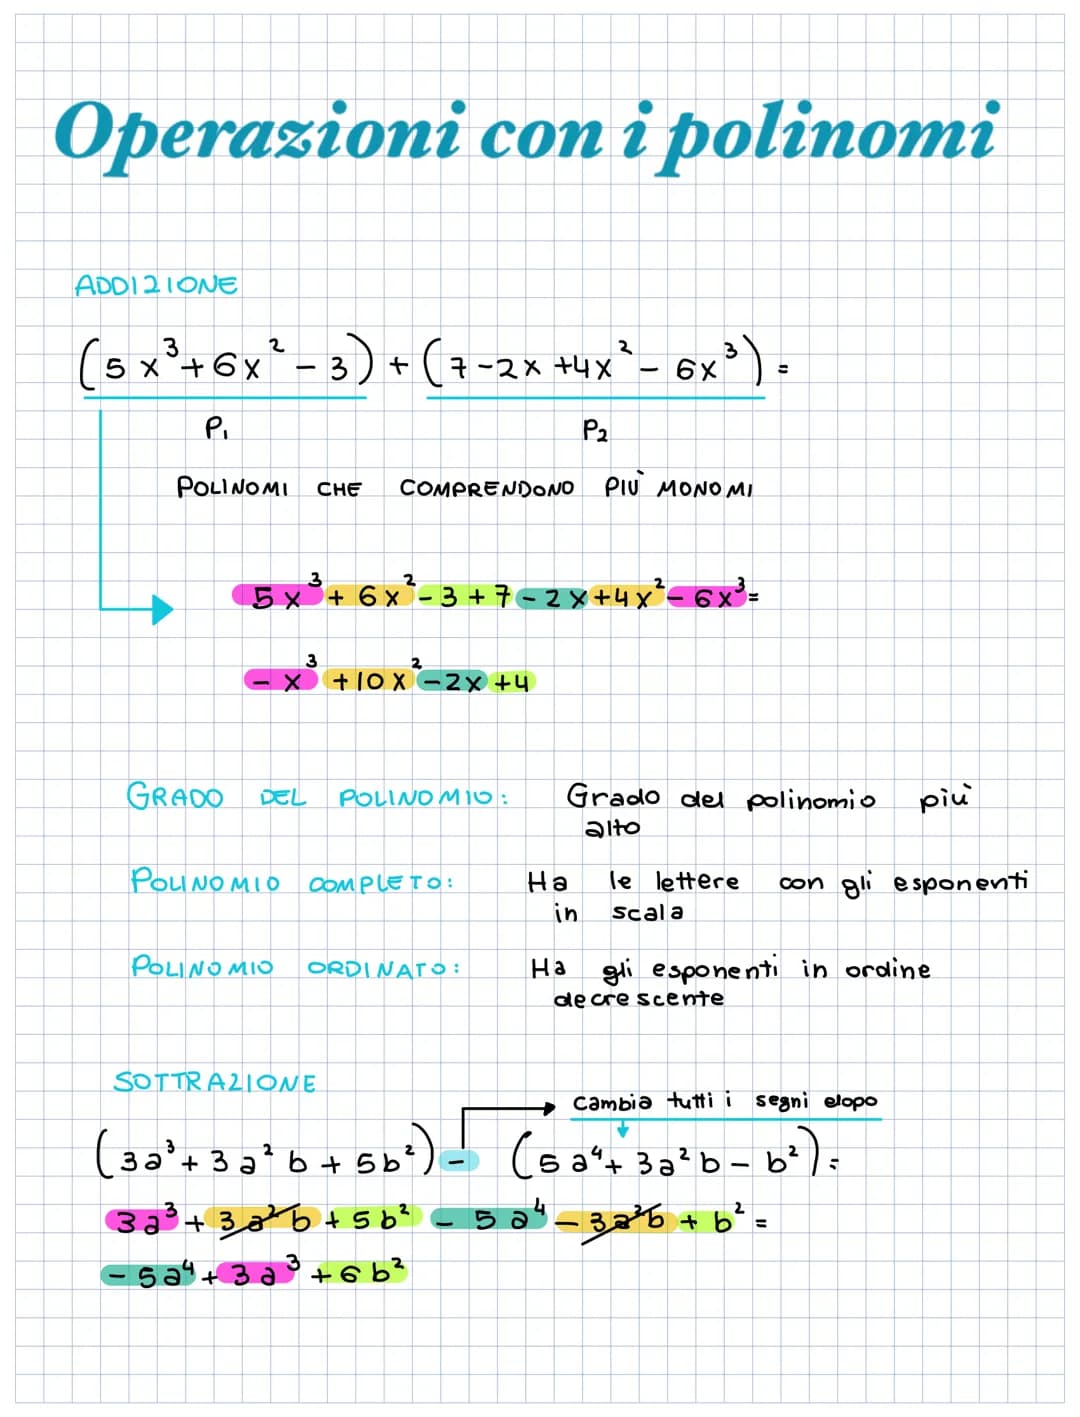 Operazioni con i polinomi
ADDIZIONE
(5x³+6x²-3)+(7-2x+4x²-6x³)=
P₁ P₂
POLINOMI CHE COMPRENDONO PIÙ MONOMI
5x³+6x²-3+7-2x+4x²-6x³=
-x³+10x²-2x+4
GRADO DEL POLINOMIO: Grado del polinomio più
alto
POLINOMIO COMPLETO: Ha le lettere con gli esponenti
in scala
POLINOMIO ORDINATO: Ha gli esponenti in ordine
decrescente
SOTTRAZIONE
cambia tutti i segni dopo
(3a³+3a²b+5b²)-(5a⁴+3a²b-b²)=
3a³+3a²b+5b²-5a⁴-3a²b+b²=
-5a⁴+3a³+6b²